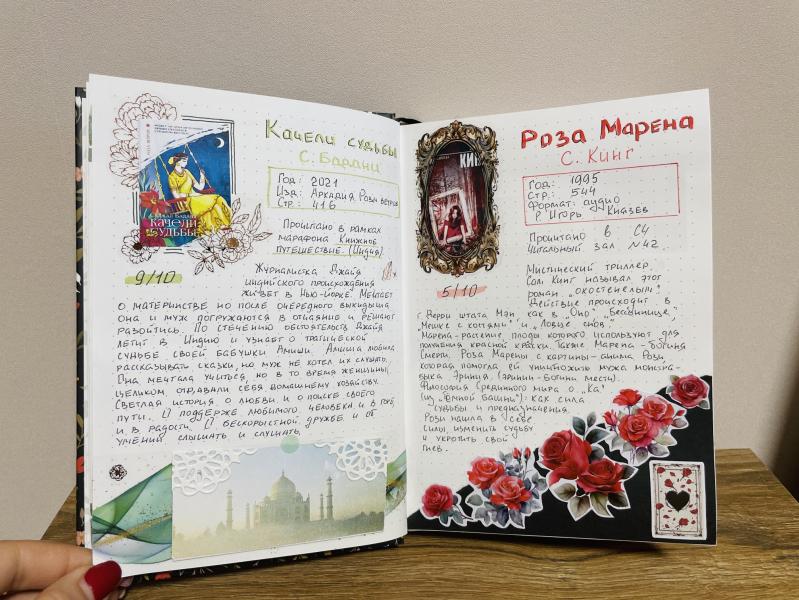 Качели судьбы
С. Бадани
Год: 2021
Изд: Аркадия, Роза ветров
Стр.: 416
Прочитано в рамках
марафона Книжное
путешествие. (Индия)
качели
судьбы
9/10
Журналистка Джайя
индийского происхождения
живёт в Нью-Йорке. Мечтает
о материнстве но после очередного выкидыша
она и муж погружаются в отчаяние и решают
разойтись. По стечению обстоятельств Джайя
летит в Индию и узнает о трагической
судьбе своей бабушки Амиши. Амиша любила
рассказывать сказки, но муж не хотел их слушать.
Она мечтала учиться, но в то время женщины,
целиком отдавали себя домашнему хозяйству.
Светлая история о любви и о поиске своего
пути. О поддержке любимого человека и в горе,
и в радости. О бескорыстной дружбе и об
умении слышать и слушать.
Роза Марена
С. Кинг
Год: 1995
Стр.: 544
Формат: аудио
Игорь Князев
КИНГ
Прочитано в С4
Читальный зал №42.
5/10
Мистический триллер.
Сам Кинг называл этот
роман „окостенелым".
Действие происходит в
г. Дерри штата Мэн, как в „Оно", „Бессоннице",
„Мешке с костями" и „Ловце снов".
Марена-растение плоды которого используют для
получения красной краски. Также Марена-богиня
Смерти. Роза Марены с картины-анима Рози,
которая помогла ей уничтожить мужа монстра-
быка Эриния. (Эринии-богини мести).
Философия Срединного мира о „Ка"
(из „Тёмной башни"): как сила
судьбы и предназначения.
Рози нашла в себе
силы, изменить судьбу
и укротить свой
гнев.